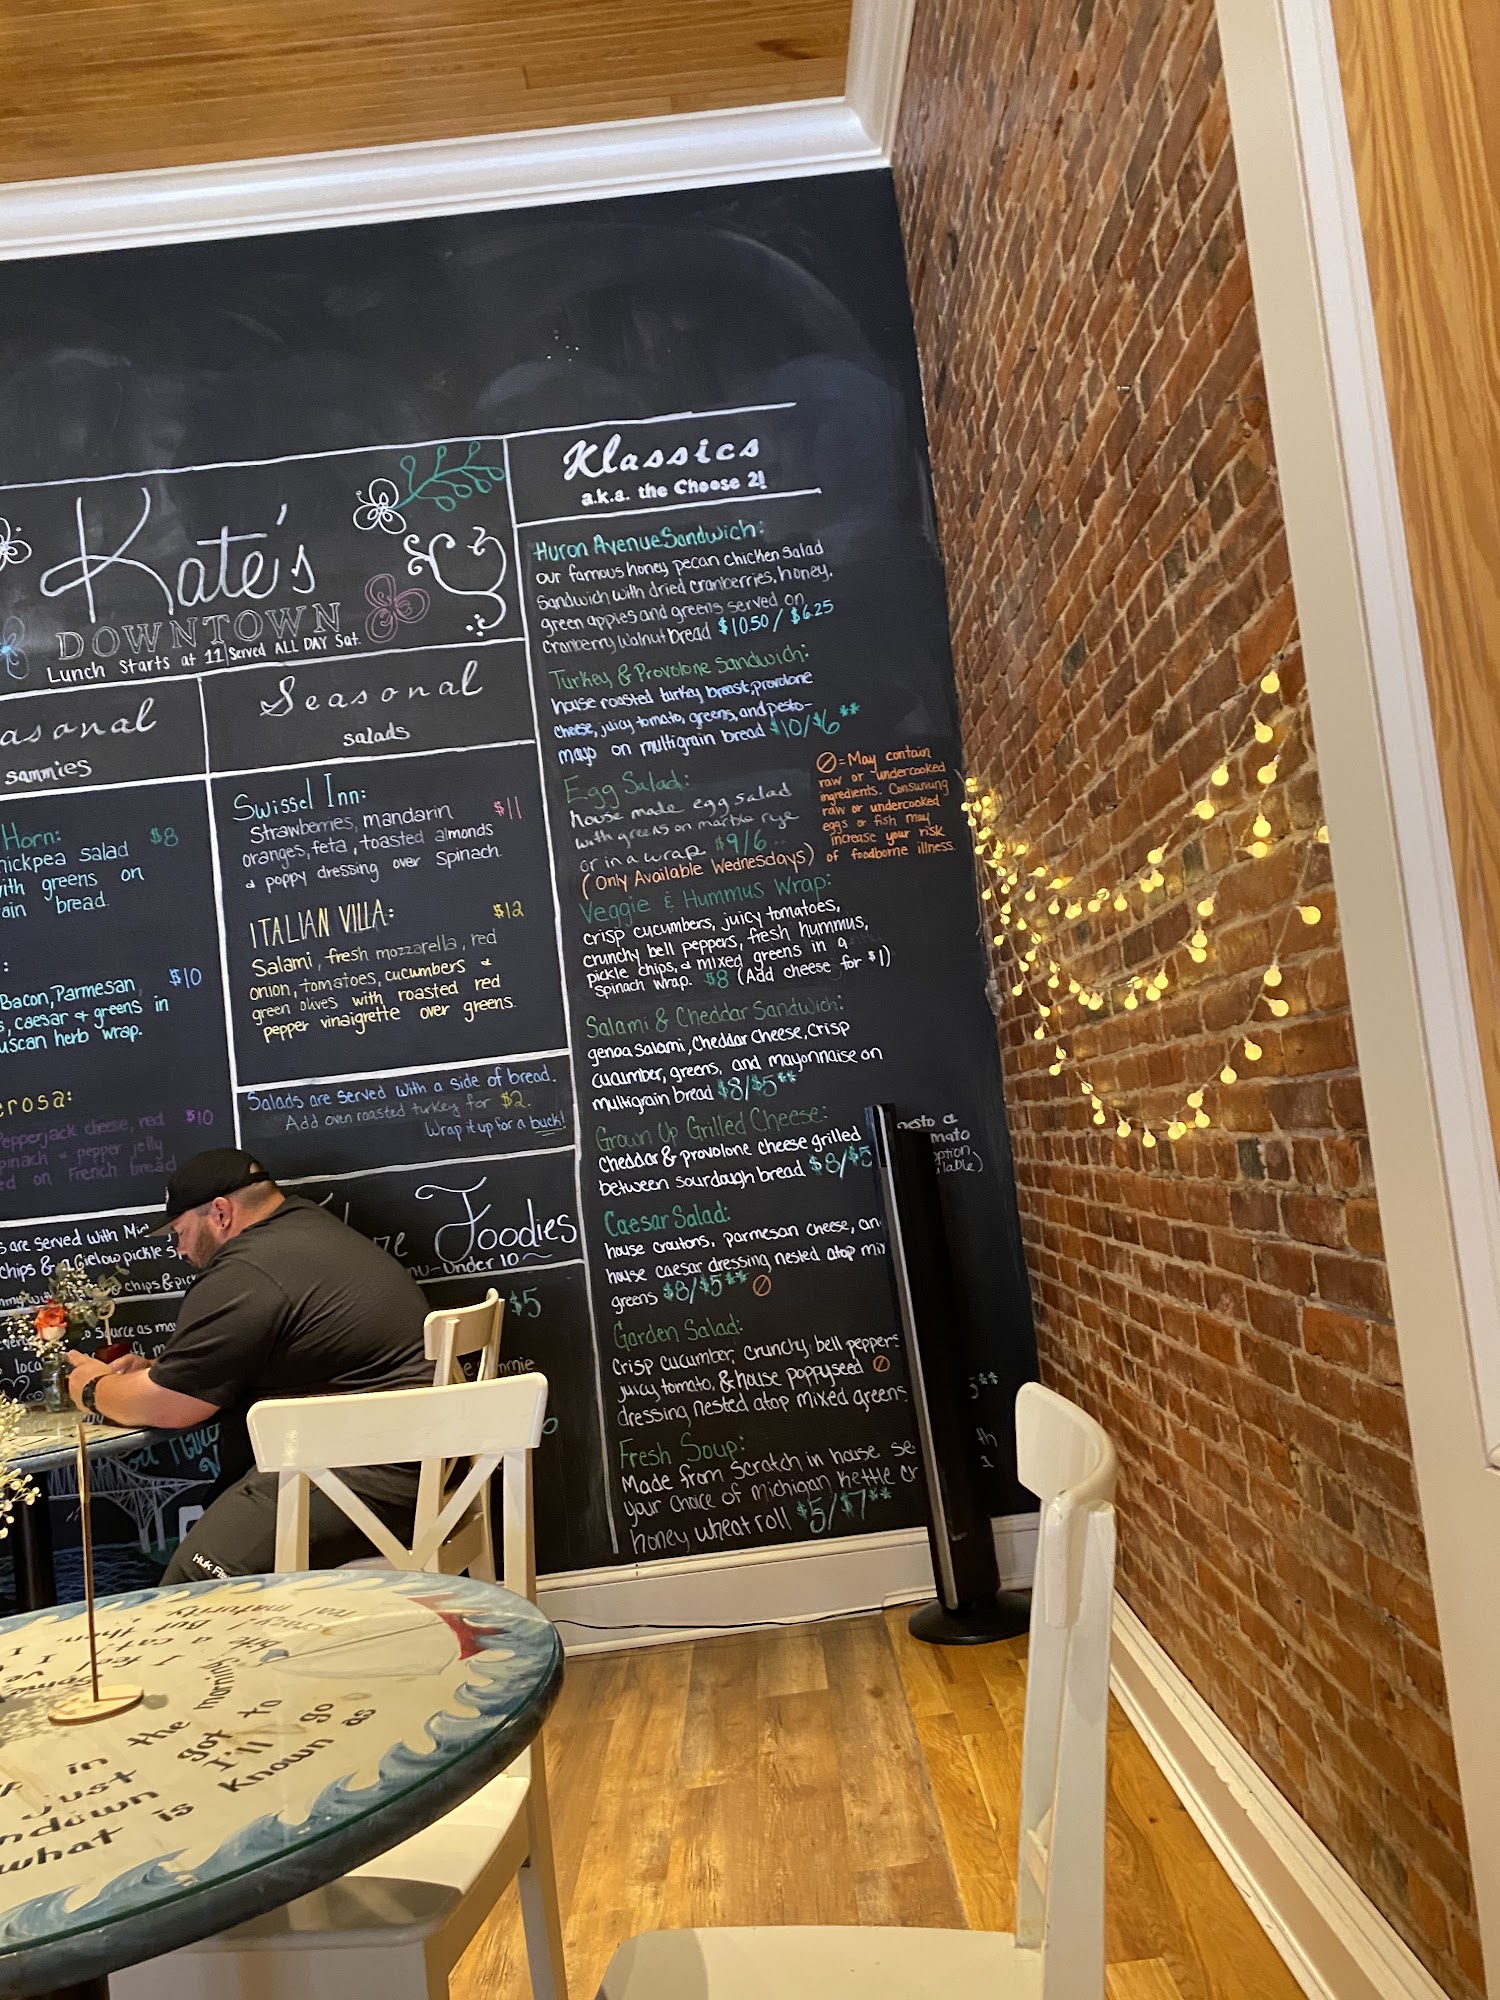 Kate's
DOWNTOWN
Lunch Starts at 11 | Served ALL DAY Sat.
sammies
Horn: $8
salad
greens on
bread.
$10
Bacon, Parmesan,
caesar & greens in
herb wrap.
$10
Pepperjack cheese, red
& pepper jelly
on French bread
are served with
chips & a Gielow pickle
chips &
source as
Seasonal
salads
Swissel Inn:
Strawberries, mandarin $11
oranges, feta, toasted almonds
& poppy dressing over Spinach.
ITALIAN VILLA: $12
Salami, fresh mozzarella, red
onion, tomatoes, cucumbers &
green olives with roasted red
pepper vinaigrette over greens.
Salads are served with a side of bread.
Add oven roasted turkey for $2.
Wrap it up for a buck!
Foodies
Under 10
$5
Klassics
a.k.a. the Choose 2!
Huron Avenue Sandwich:
our famous honey pecan chicken salad
sandwich with dried cranberries, honey,
green apples and greens served on
cranberry walnut bread $10.50 / $6.25
Turkey & Provolone Sandwich:
house roasted turkey breast, provolone
cheese, juicy tomato, greens, and pesto-
mayo on multigrain bread $10/$6**
Egg Salad:
house made egg salad
with greens on marble rye
or in a wrap $9/6
(Only Available Wednesdays)
= May contain
raw or undercooked
ingredients. Consuming
raw or undercooked
eggs or fish may
increase your risk
of foodborne illness.
Veggie & Hummus Wrap:
crisp cucumbers, juicy tomatoes,
crunchy bell peppers, fresh hummus,
pickle chips, & mixed greens in a
spinach wrap. $8 (Add cheese for $1)
Salami & Cheddar Sandwich:
genoa salami, Cheddar Cheese, crisp
cucumber, greens, and mayonnaise on
multigrain bread $8/$5**
Grown Up Grilled Cheese:
cheddar & provolone cheese grilled
between sourdough bread $8/$5
Caesar Salad:
house croutons, parmesan cheese,
house caesar dressing nested atop
greens $8/$5**
Garden Salad:
crisp cucumber, crunchy, bell
juicy tomato, & house poppyseed
dressing nested atop mixed greens
Fresh Soup:
Made from scratch in house
your choice of Michigan Kettle
honey wheat roll $5/$7**
in the morning
just got to
I'll go
what is known as
real maturity
but then
bite a
I feel